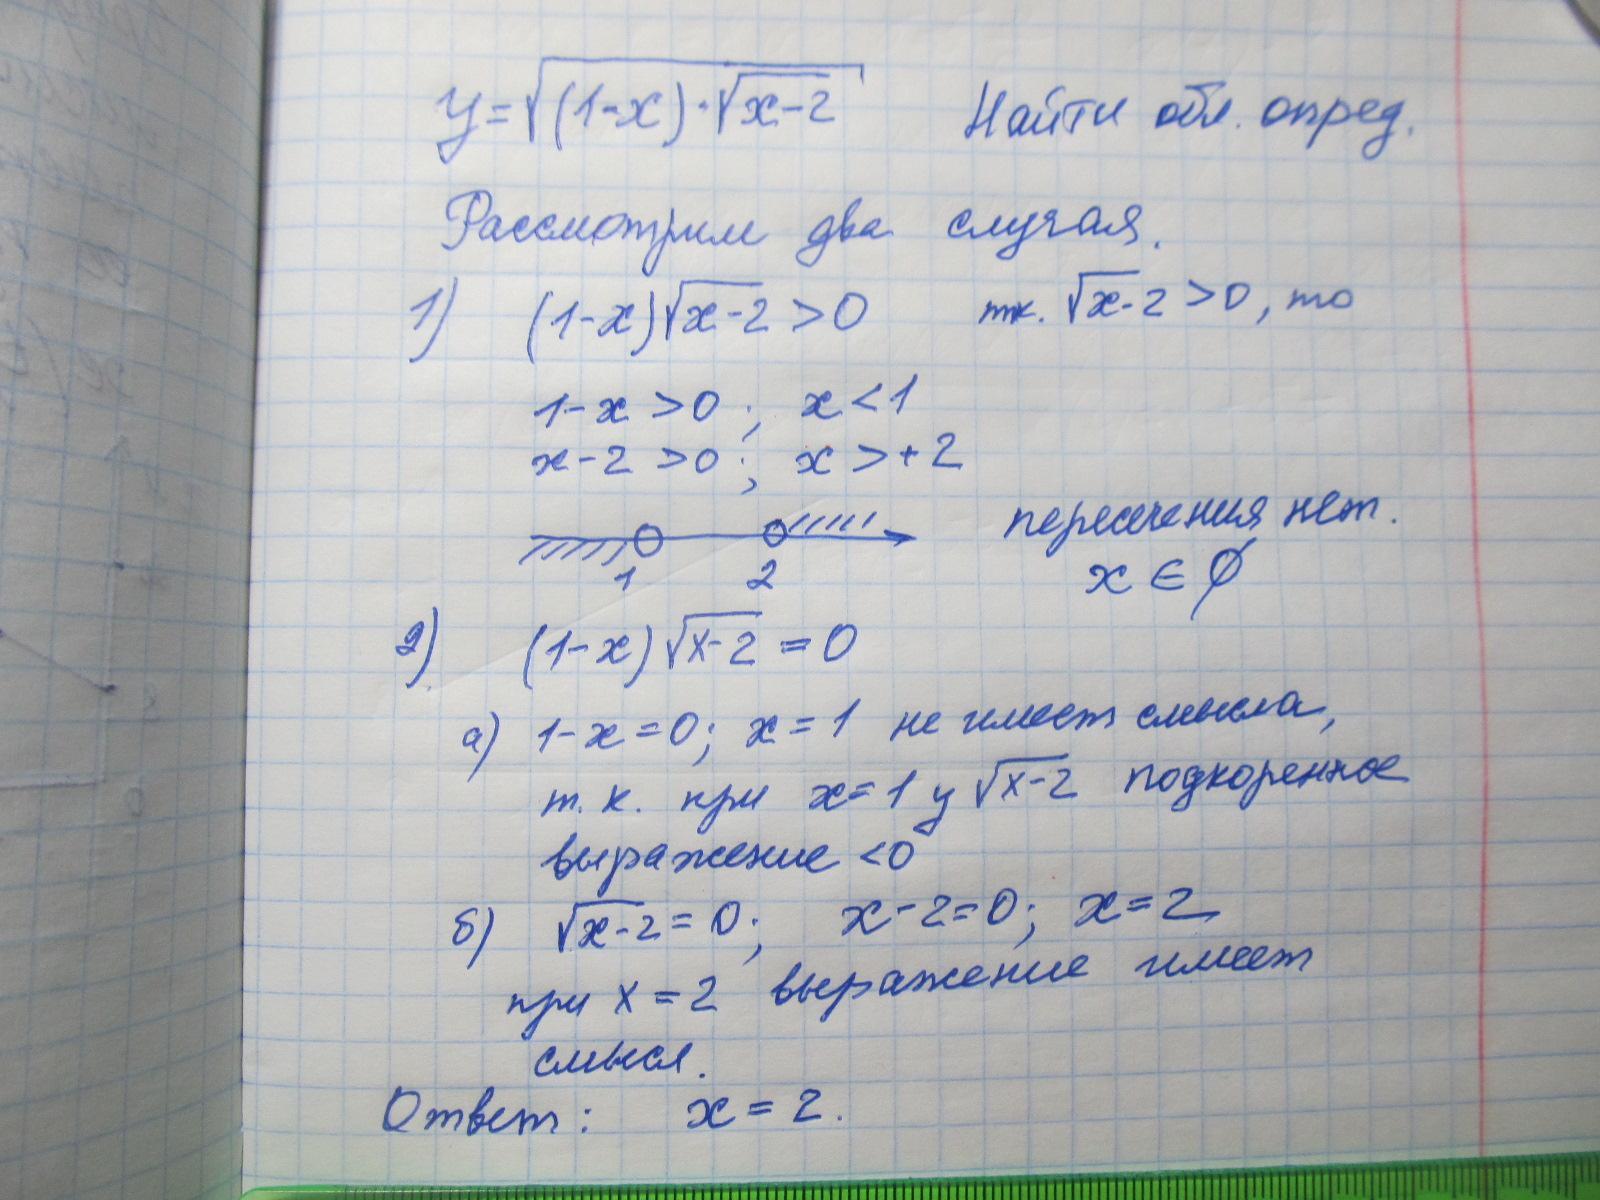 y=√((1-x)·√(x-2)) Найти обл. опред.
Рассмотрим два случая.
1) (1-x)√(x-2) >0 т.к. √(x-2) >0, то
1-x >0; x<1
x-2 >0; x >+2
1 2 пересечения нет.
x ∈ ∅
2) (1-x)√(x-2) =0
а) 1-x=0; x=1 не имеет смысла,
т.к. при x=1 у √(x-2) подкоренное
выражение <0
б) √(x-2) = 0; x-2=0; x=2
при x=2 выражение имеет
смысл.
Ответ: x=2.